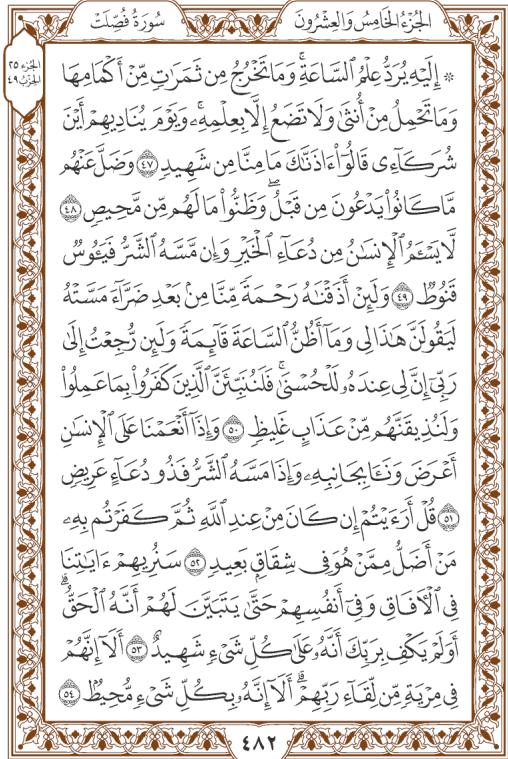 الجُزْءُ الخَامِسُ وَالعِشْرُونَ
سُورَةُ فُصِّلَتْ
الجزء ٢٥
الحزب ٤٩
۞ إِلَيْهِ يُرَدُّ عِلْمُ ٱلسَّاعَةِۚ وَمَا تَخْرُجُ مِن ثَمَرَٰتٍ مِّنْ أَكْمَامِهَا
وَمَا تَحْمِلُ مِنْ أُنثَىٰ وَلَا تَضَعُ إِلَّا بِعِلْمِهِۦۚ وَيَوْمَ يُنَادِيهِمْ أَيْنَ
شُرَكَآءِى قَالُوٓاْ ءَاذَنَّٰكَ مَا مِنَّا مِن شَهِيدٍ ٤٧ وَضَلَّ عَنْهُم
مَّا كَانُواْ يَدْعُونَ مِن قَبْلُۖ وَظَنُّواْ مَا لَهُم مِّن مَّحِيصٍ ٤٨
لَّا يَسْـَٔمُ ٱلْإِنسَٰنُ مِن دُعَآءِ ٱلْخَيْرِ وَإِن مَّسَّهُ ٱلشَّرُّ فَيَـُٔوسٌ
قَنُوطٌ ٤٩ وَلَئِنْ أَذَقْنَٰهُ رَحْمَةً مِّنَّا مِنۢ بَعْدِ ضَرَّآءَ مَسَّتْهُ
لَيَقُولَنَّ هَٰذَا لِى وَمَآ أَظُنُّ ٱلسَّاعَةَ قَآئِمَةً وَلَئِن رُّجِعْتُ إِلَىٰ
رَبِّىٓ إِنَّ لِى عِندَهُۥ لَلْحُسْنَىٰۚ فَلَنُنَبِّئَنَّ ٱلَّذِينَ كَفَرُواْ بِمَا عَمِلُواْ
وَلَنُذِيقَنَّهُم مِّنْ عَذَابٍ غَلِيظٍ ٥٠ وَإِذَآ أَنْعَمْنَا عَلَى ٱلْإِنسَٰنِ
أَعْرَضَ وَنَـَٔا بِجَانِبِهِۦ وَإِذَا مَسَّهُ ٱلشَّرُّ فَذُو دُعَآءٍ عَرِيضٍ
٥١ قُلْ أَرَءَيْتُمْ إِن كَانَ مِنْ عِندِ ٱللَّهِ ثُمَّ كَفَرْتُم بِهِۦ
مَنْ أَضَلُّ مِمَّنْ هُوَ فِى شِقَاقٍۭ بَعِيدٍ ٥٢ سَنُرِيهِمْ ءَايَٰتِنَا
فِى ٱلْأٓفَاقِ وَفِىٓ أَنفُسِهِمْ حَتَّىٰ يَتَبَيَّنَ لَهُمْ أَنَّهُ ٱلْحَقُّۗ
أَوَلَمْ يَكْفِ بِرَبِّكَ أَنَّهُۥ عَلَىٰ كُلِّ شَىْءٍ شَهِيدٌ ٥٣ أَلَآ إِنَّهُمْ
فِى مِرْيَةٍ مِّن لِّقَآءِ رَبِّهِمْۗ أَلَآ إِنَّهُۥ بِكُلِّ شَىْءٍ مُّحِيطٌۢ ٥٤
٤٨٢